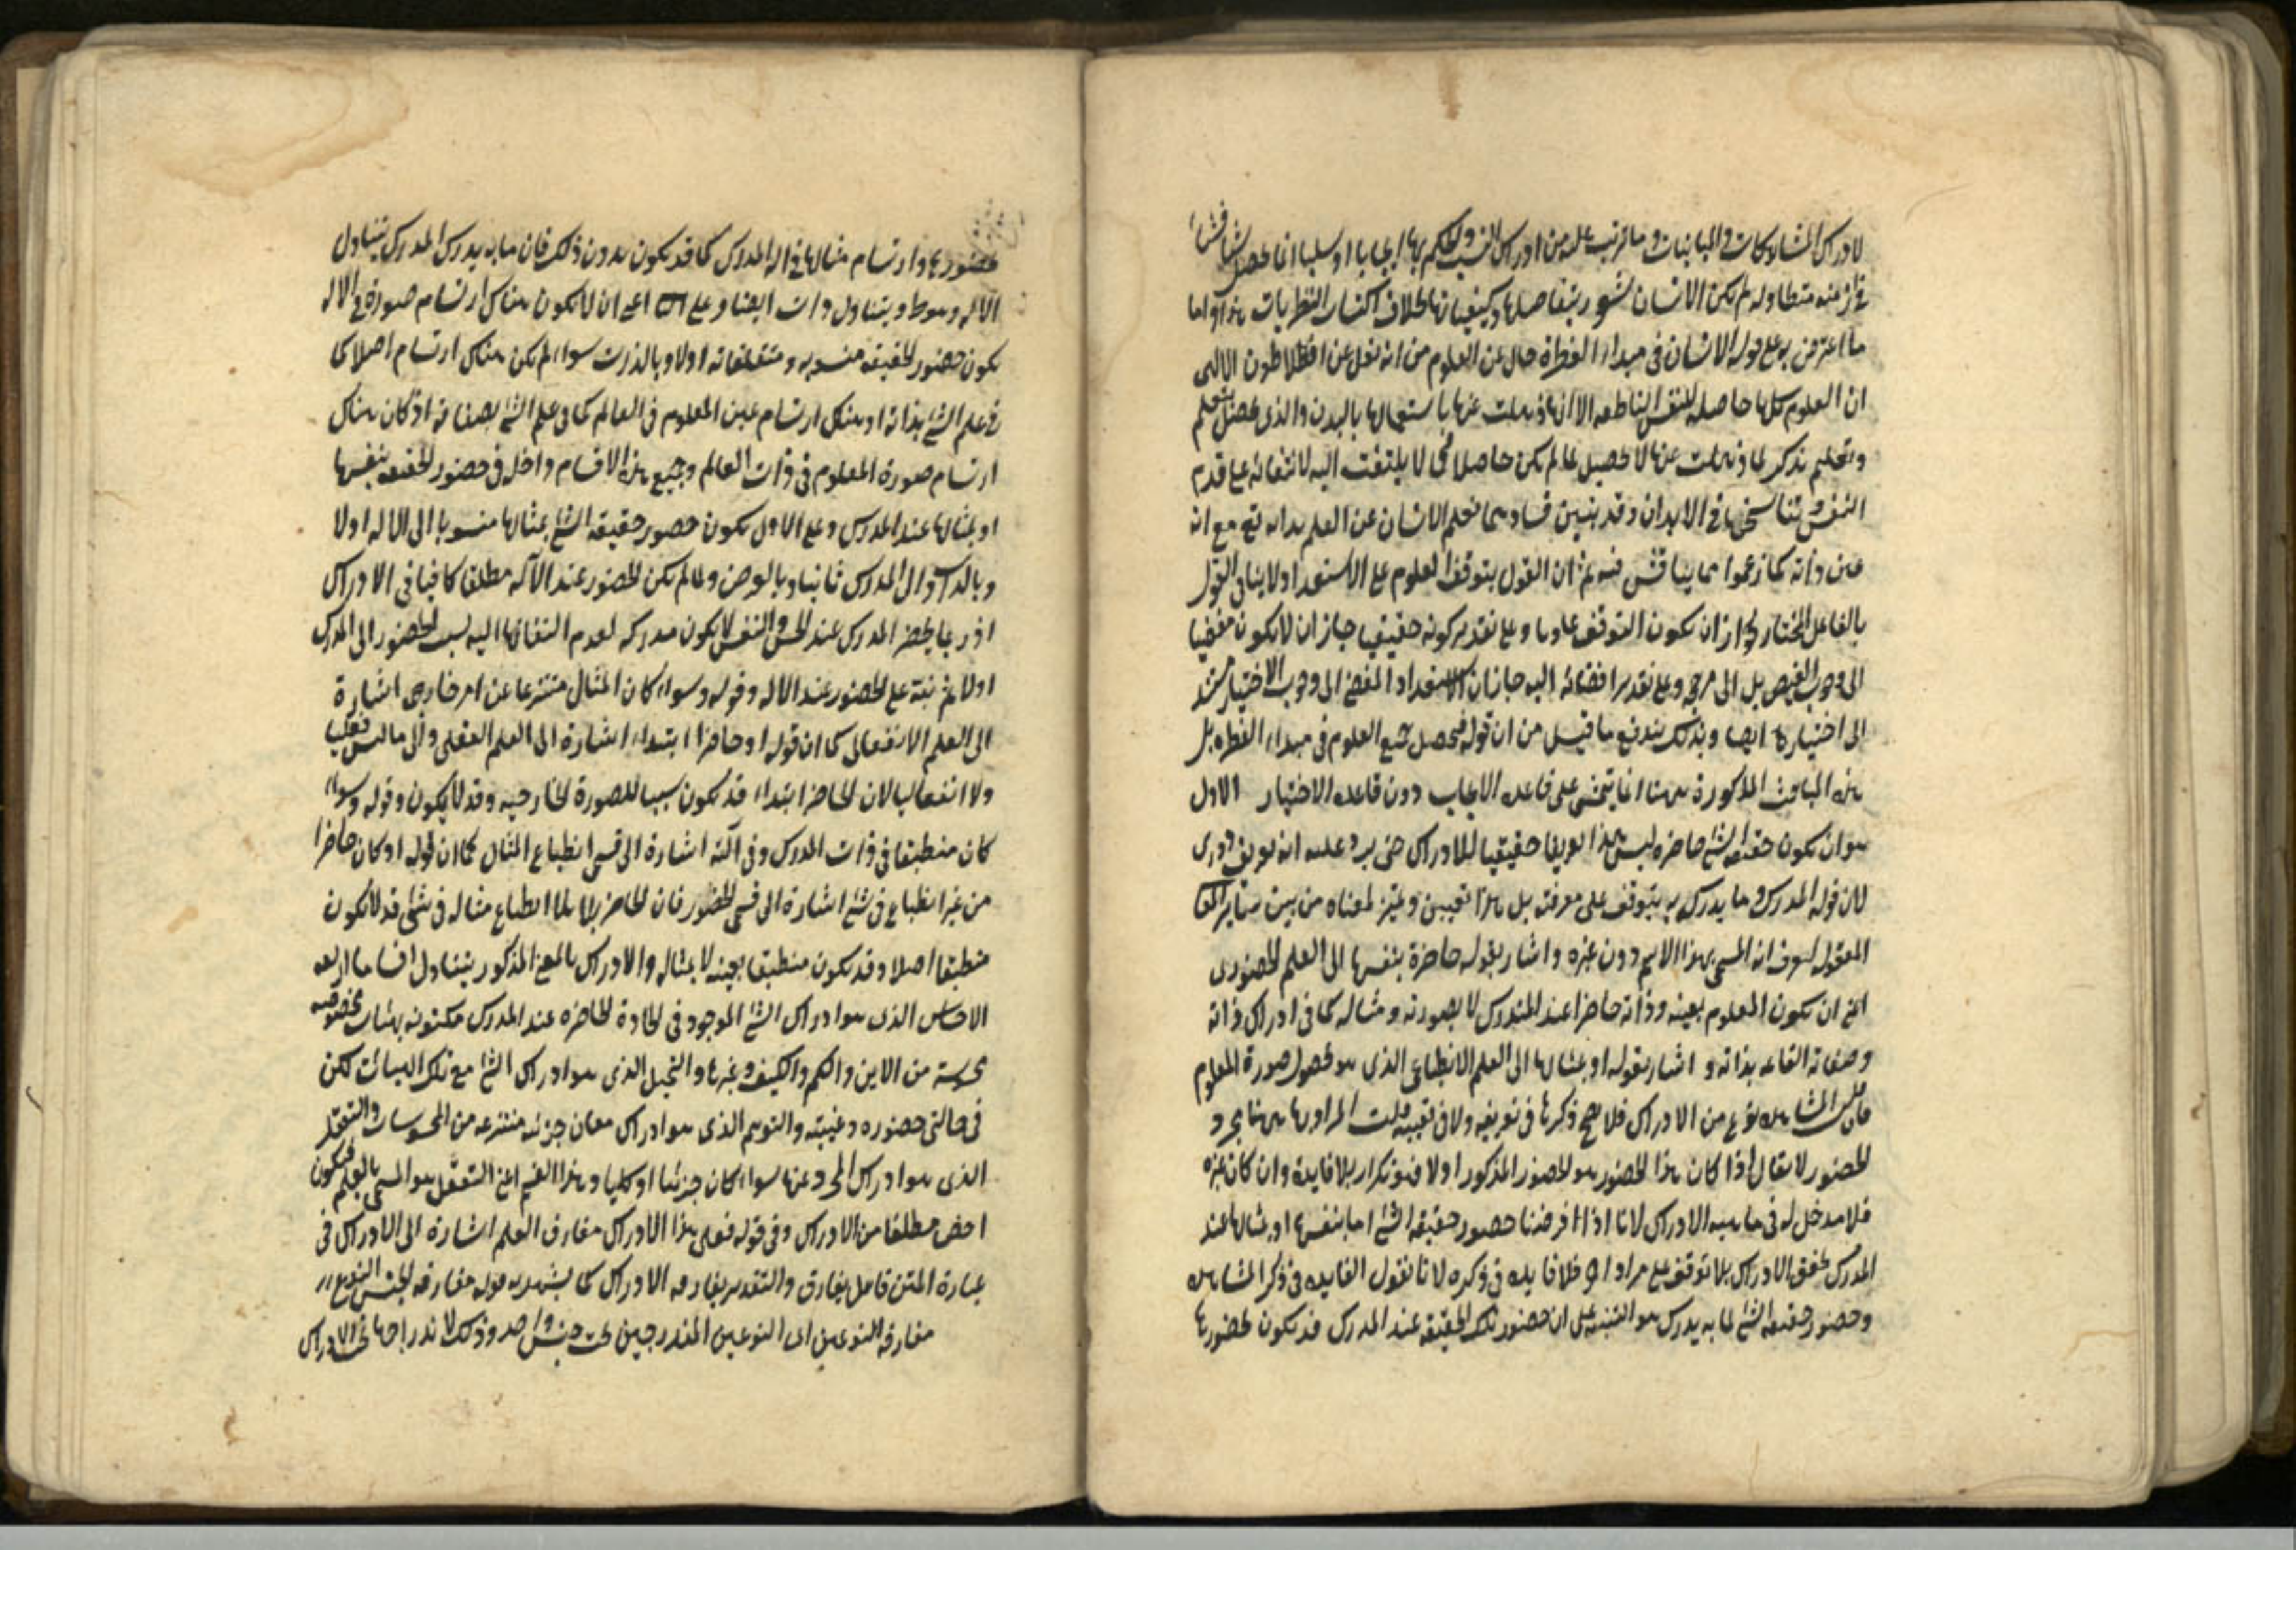 لادراك المشاركات والمباينات وما ترتب عليه من ادراك النسب والحكم بها ايجابا او سلبا انما يحصل شيئا فشيئا
في ازمنه متطاوله لم يكن الانسان شعور بتفاصيلها وكيفياتها بخلاف اكتساب النظريات هذا واما
ما اعترض به على قوله الانسان في مبداء الفطرة خال عن العلوم من انه نقل عن افلاطون الالهى
ان العلوم كلها حاصله للنفس الناطقه الا انها ذهلت عنها باستعمالها بالبدن والذى يحصل بتعلم
وتعليم تذكر لما ذهلت عنها لا تحصيل لما لم يكن حاصلا فمما لا يلتفت اليه لابتنائه على قدم
النفس وتناسخها في الابدان وقد تبين فساد هما فعلم الانسان عن العلم بذاته تع مع انه
عين ذاته كما زعموا مما يناقش فيه ثم ان القول بتوقف العلوم على الاستعداد لا ينافى القول
بالفاعل المختار لجواز ان يكون التوقف عاديا وعلى تقدير كونه حقيقيا جاز ان لا يكون مفضيا
الى وجوب الفيض بل الى مرجح وعلى تقدير افضائه اليه جاز ان الاستعداد المفضى الى وجوب الاختيار مستند
الى اختياره ايضا وبذلك يندفع ما قيل من ان قوله فيحصل جميع العلوم في مبداء الفطره بل
هذه المباحث المذكورة ههنا انما يتمشى على قاعده الايجاب دون قاعده الاختيار الاول
هو ان يكون حقيقه الشئ حاضره ليس هذا تعريفا حقيقيا للادراك حتى يرد عليه انه تعريف دورى
لان قوله المدرك وما يدرك به يتوقف على معرفته بل هذا تعيين وتميز لمعناه من بين ساير المعا
المعقوله ليعرف انه المسمى بهذا الاسم دون غيره واشار بقوله حاضرة بنفسها الى العلم الحضورى
اعنى ان يكون المعلوم بعينه وذاته حاضرا عند المدرك لا بصورته ومثاله كما في ادراك ذاته
وصفاته القائمه بذاته و اشار بقوله او بمثالها الى العلم الانطباعى الذى هو حصول صورة المعلوم
فان قلت المشاهده نوع من الادراك فلا يصح ذكرها في تعريفه ولا في تعيينه قلت المراد بها ههنا مجرد
الحضور لا يقال اذا كان هذا الحضور هو الحضور المذكور اولا فهو تكرار بلا فايدة وان كان غيره
فلا مدخل له في ماهيه الادراك لانا اذا فرضنا حصور حقيقه الشئ اما بنفسها او بمثالها عند
المدرك تحقق الادراك بلا توقف على مر اخر فلا فايده في ذكره لانا نقول الفايده في ذكر المشاهده
وحضور حقيقه الشئ لما به يدرك هو التنبيه على ان حضور تلك الحقيقه عند المدرك قد يكون بحضورها
بحضورها وارتسام مثالها في اله المدرك كما قد يكون بدون ذلك فان ما به يدرك المدرك يتناول
الاله وهو ط ويتناول ذات ايضا وعلى اعنى ان لا يكون هناك ارتسام صورة في الاله
يكون حضور الحقيقه منسوبه و متعلقاته اولا وبالذات سواء لم يكن هناك ارتسام اصلا كما
في علم الشئ بذاته او هناك ارتسام عين المعلوم في العالم كما في علم الشئ بصفاته او كان هناك
ارتسام صورة المعلوم في ذات العالم وجميع هذه الاقسام داخل في حضور الحقيقه بنفسها
او بمثالها عند المدرك وعلى الاول يكون حصور حقيقه الشئ بمثالها منسوبا الى الاله اولا
وبالذات والى المدرك ثانيا وبالعرض ولما لم يكن الحضور عند الآله مطلقا كافيا في الادراك
اذ ربما يحضر المدرك عند الحس والنفس لا يكون مدركه لعدم التفاتها اليه نسب الحضور الى المدرك
اولا ثم نبه على الحضور عند الاله وقوله وسواء كان المثال منتزعا عن امر خارجى اشارة
الى العلم الانفعالى كما ان قوله او حاضرا ابتداء اشارة الى العلم الفعلى والى ما ليس فعليا
ولا انفعاليا لان الحاضر ابتداء قد يكون سببا للصورة الخارجيه وقد لا يكون وقوله وسواء
كان منطبقا في ذات المدرك وفي آلته اشارة الى قسمى انطباع المثال كما ان قوله او كان حاضرا
من غير انطباع في شئ اشارة الى قسمى الحضور فان الحاضر بلا انطباع مثاله في شئ قد لا يكون
منطبقا اصلا وقد يكون منطبقا بعينه لا بمثاله والادراك بالمعنى المذكور يتناول اقساما اربعه
الاحساس الذى هو ادراك الشئ الموجود في المادة الحاضره عند المدرك مكتنفه بهيئات مخصوصه
محسوسة من الاين والكم والكيف وغيرها والتخيل الذى هو ادراك الشئ مع تلك الهيئات لكن
في حالتى حضوره وغيبته والتوهم الذى هو ادراك معان جزئيه منتزعه من المحسوسات والتعقل
الذى هو ادراك المجرد عنها سواء كان جزئيا او كليا وهذا القسم اعنى التعقل هو المسمى بالعلم فيكون
اخص مطلقا من الادراك وفي قوله فعلى هذا الادراك مفارق العلم اشارة الى الادراك في
عبارة المتن فاعل يفارق والتقدير يفارقه الادراك كما يشهد به قوله مفارقه الجنس النوع
مفارقه النوعين اى النوعين المندرجين تحت جنس واحد وذلك لاندراجها تحت الادراك